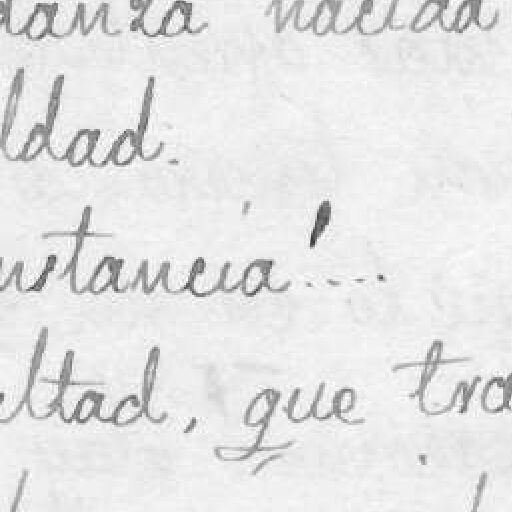 danza nacida
ldad.
nstancia!....
eltad, que tra